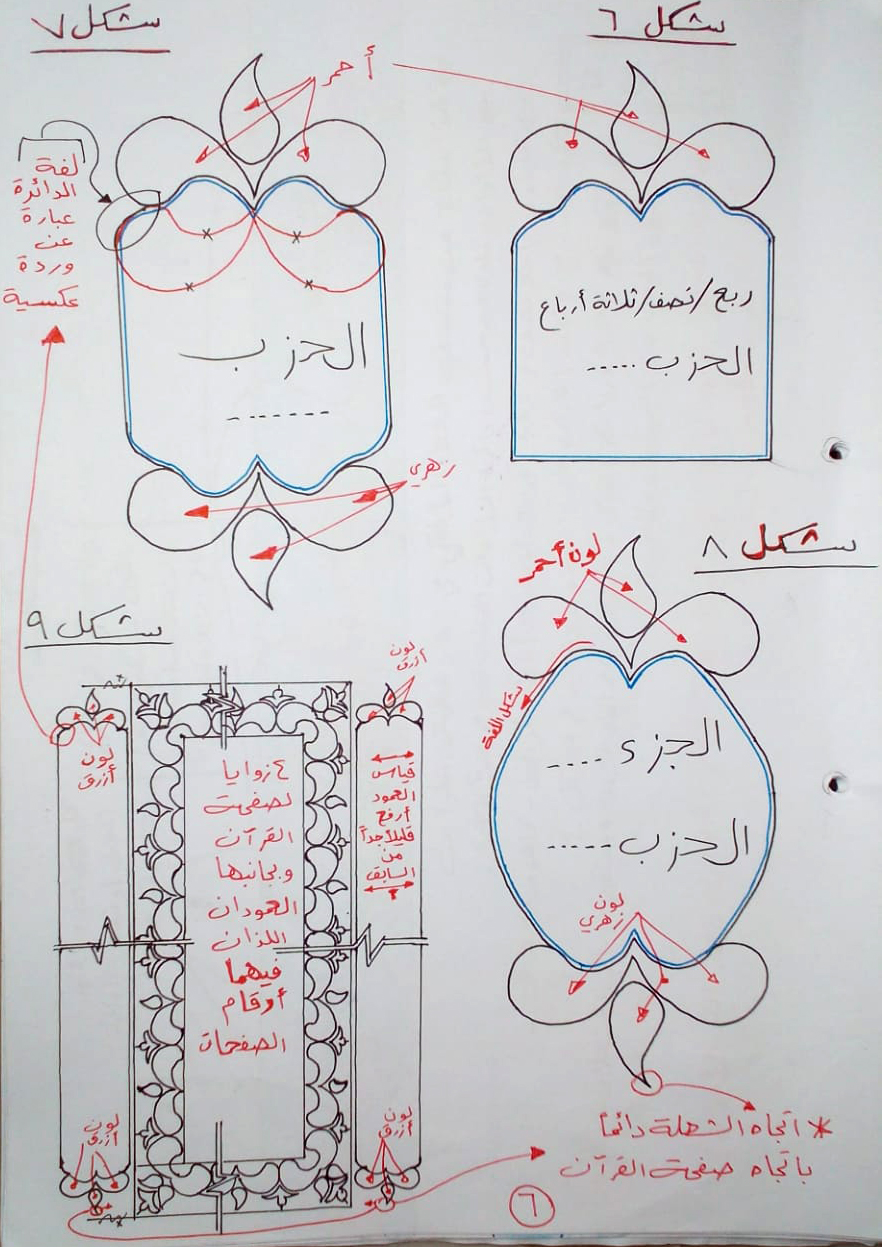 شكل ٦
شكل ٧
أحمر
لفة
الدائرة
عبارة
عن
وردة
عكسية
ربع/نصف/ثلاثة أرباع
الحزب .....
الحزب
.......
زهري
شكل ٨
لون أحمر
شكل اللفة
الجزء ....
الحزب .....
لون
زهري
شكل ٩
لون
أزرق
لون
أزرق
٤ زوايا
لصفحة
القرآن
وبجانبها
العمودان
اللذان
فيهما
أرقام
الصفحات
قياس
العمود
أرفع
قليلاً جداً
من
السابق
لون
أزرق
لون
أزرق
* اتجاه الشعلة دائماً
باتجاه صفحة القرآن
٦